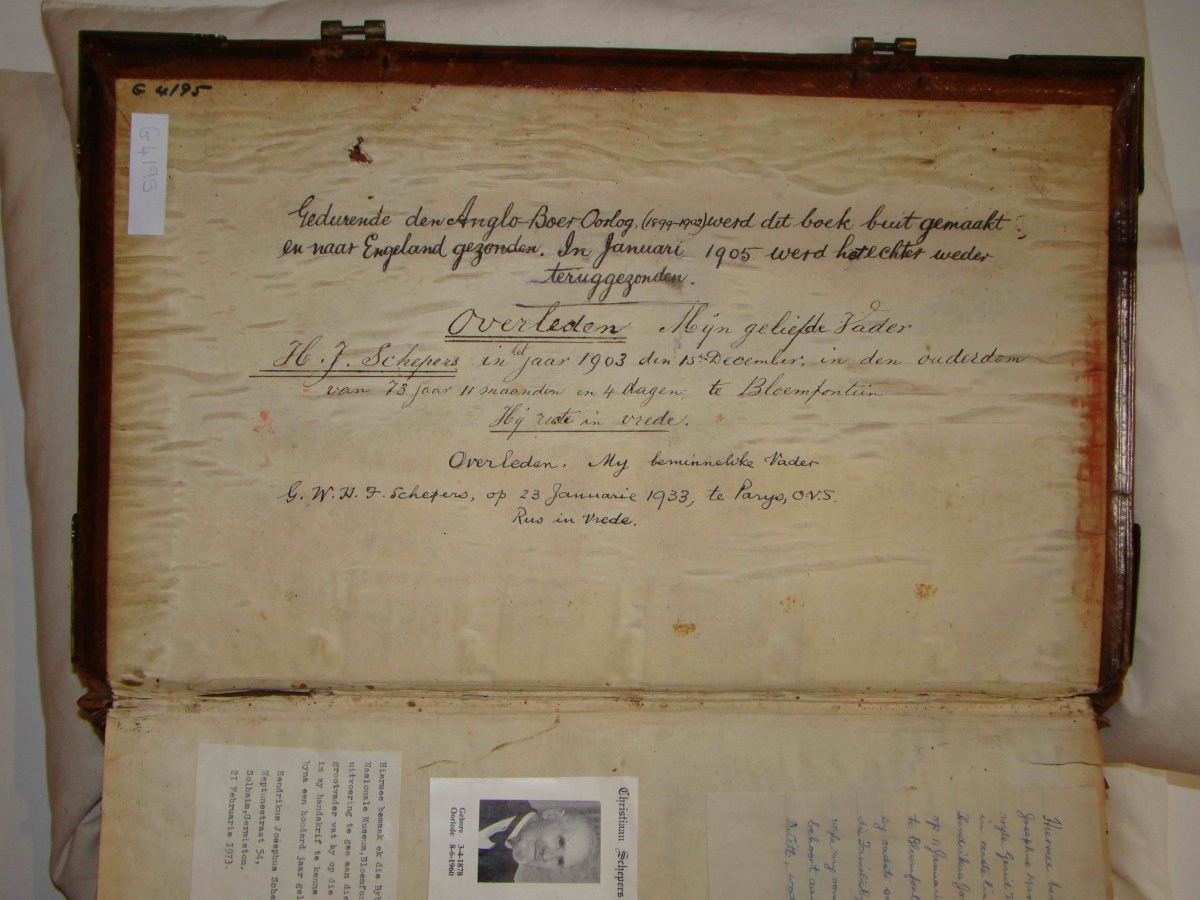 G 4195
G4195
Gedurende den Anglo-Boer Oorlog, (1899-1902) werd dit boek buit gemaakt
en naar Engeland gezonden. In Januari 1905 werd het echter weder
teruggezonden.
Overleden Mijn geliefde Vader
H. J. Schepers in het jaar 1903 den 15de December, in den ouderdom
van 73 jaar 11 maanden en 4 dagen, te Bloemfontein
Hij ruste in vrede.
Overleden. My beminnelike Vader
G. W. H. F. Schepers, op 23 Januarie 1933, te Parys, O.V.S.
Rus in Vrede.
Hiermee bemaak ek die Byb
Nasionale Museum, Bloemfo
uitvoering te gee aan die
grootvader wat hy op die
in sy handskrif te kenne
byna een honderd jaar gel
Hendrikus Josephus Sche
Neptunestraat 54,
Solheim, Germiston.
21 Februarie 1973.
Christiaan Schepers
Gebore 3-4-1878
Oorlede 8-6-1960
Hiermee
Josephus
in eerste
Hendrikus Jo
op 11 Januari
te Bloemfont
sy oudste
die Familieby
behoort aan